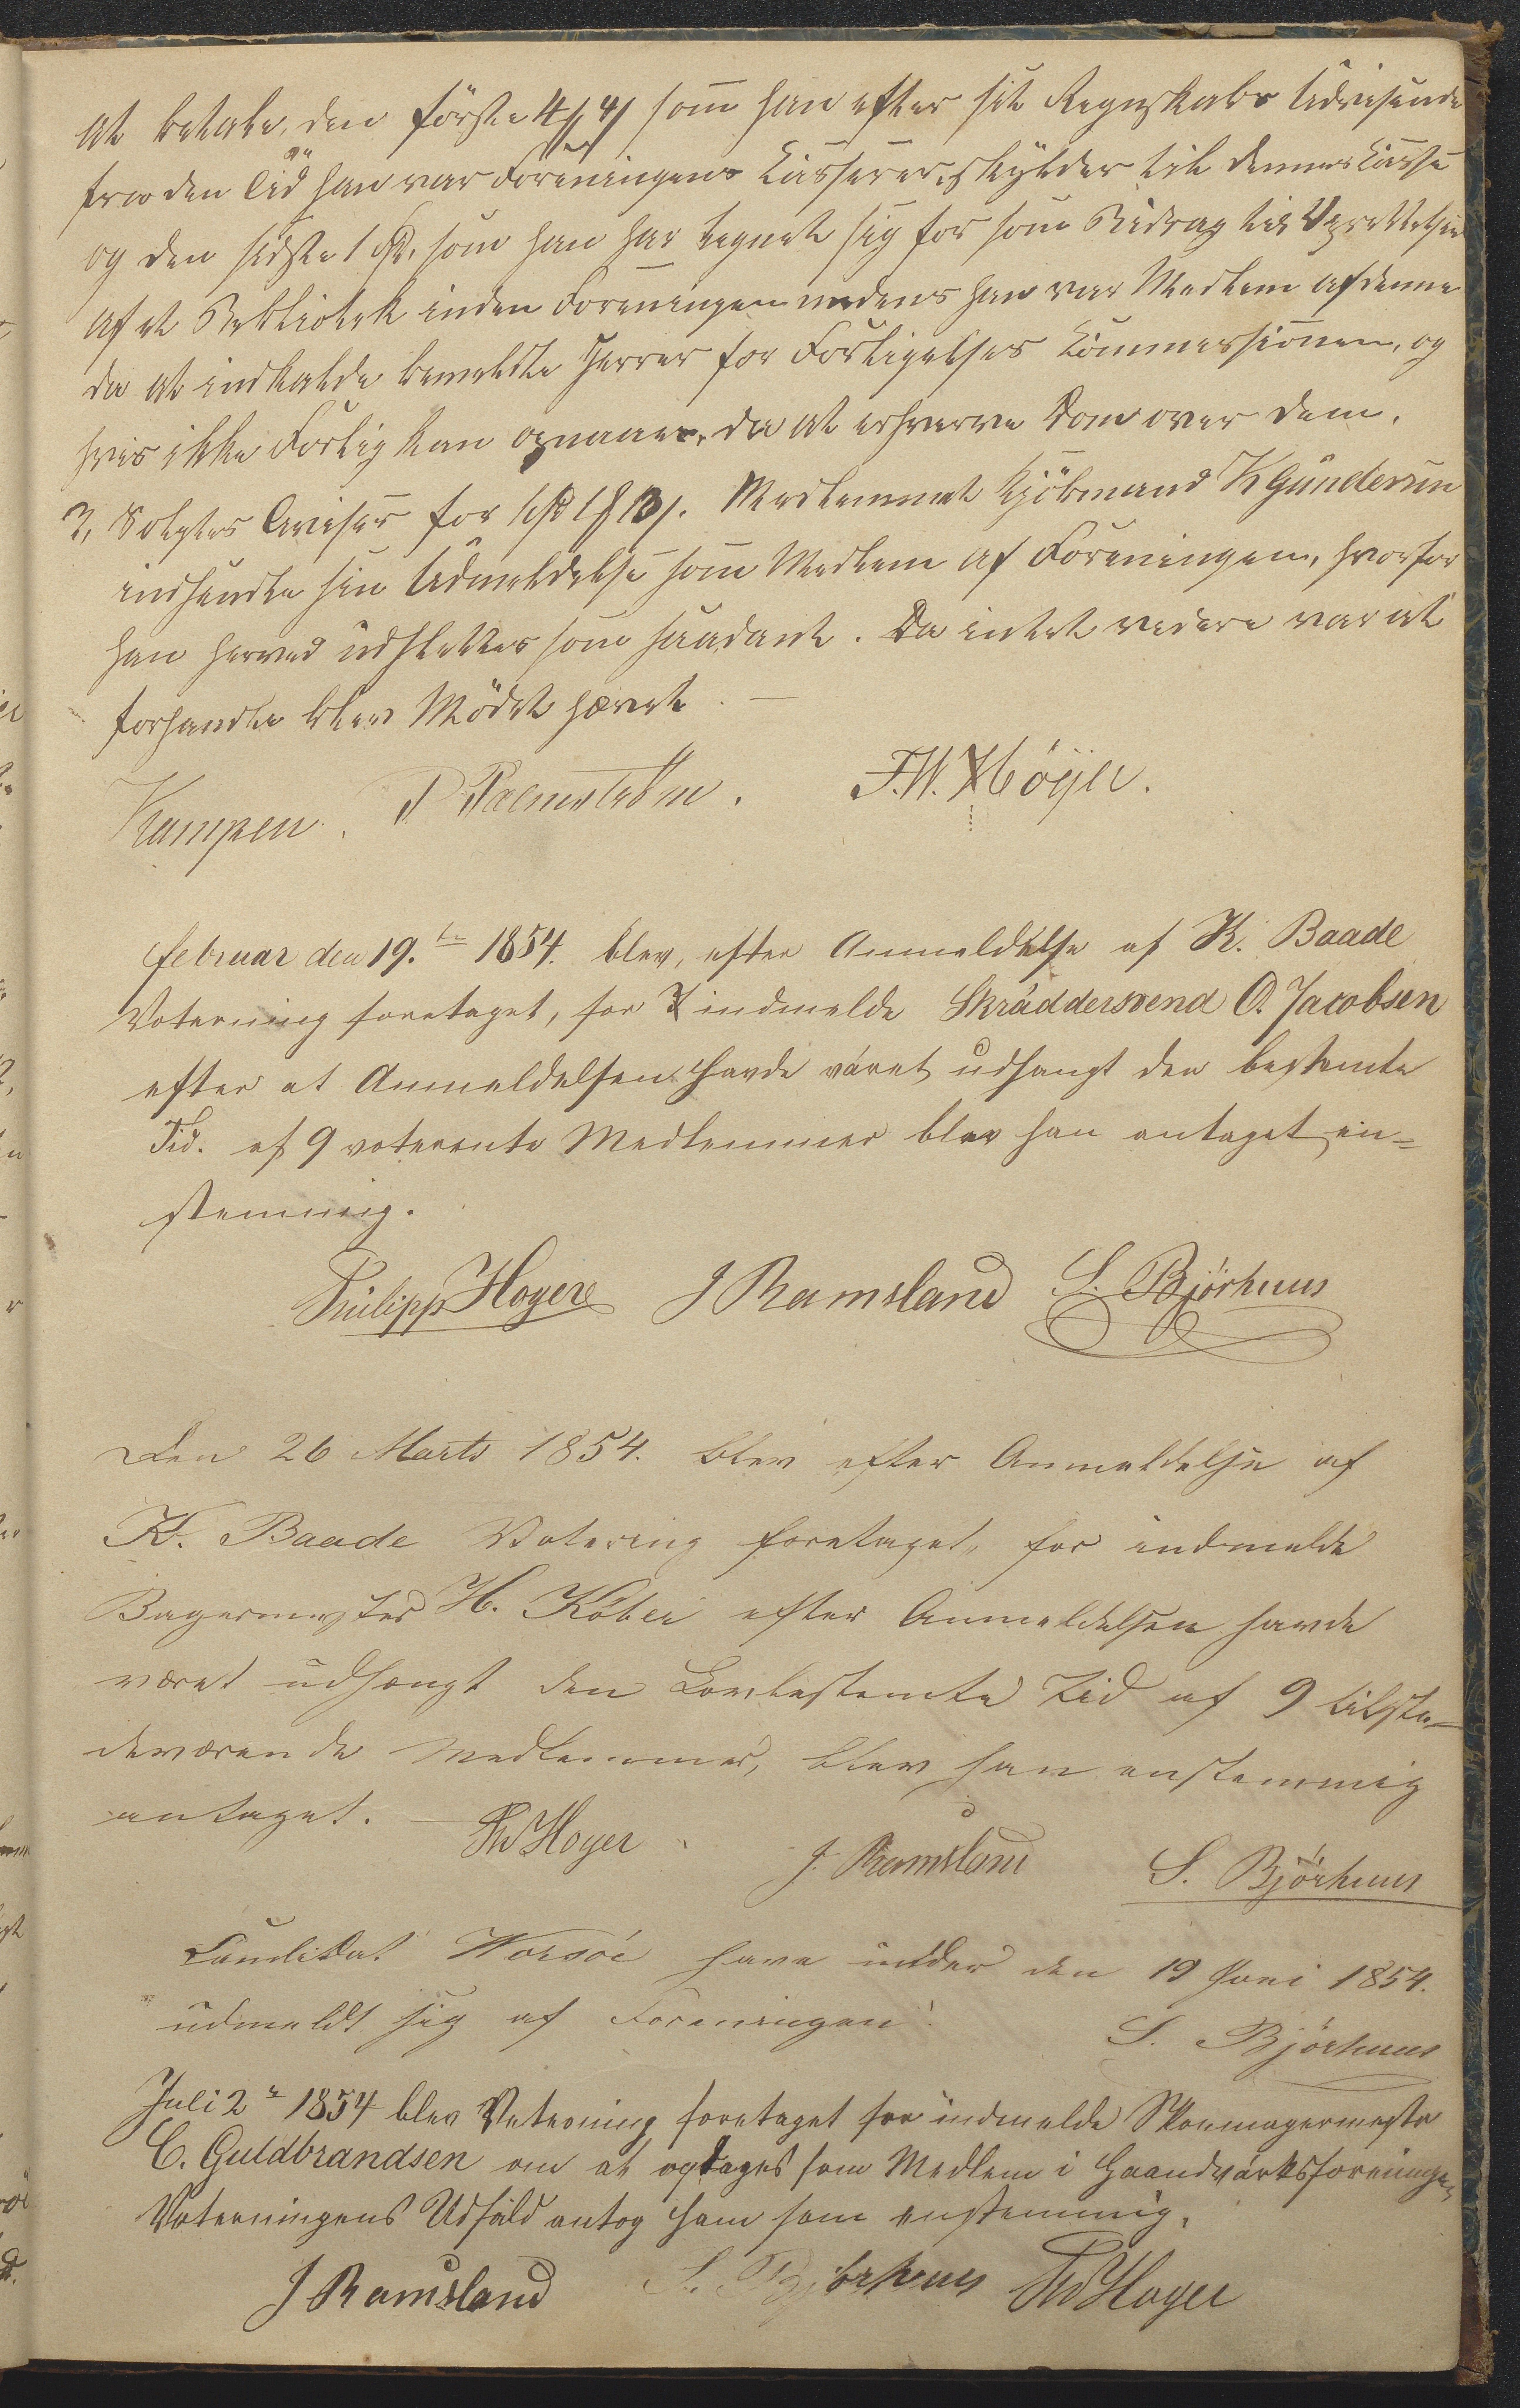 at betale, den første 4 ʃ 4 ʃ som han efter sit Regnskabs Udvisende
fra den Tid han var Foreningens Kasserer, skylder til dennes Kasse
og den sidste 1 Spd. som han har tegnet sig for som Bidrag til Oprettelsen
af et Bibliotek inden Foreningen medens han var Medlem af denne
da at indkalde bemeldte Herrer for Forligelses Commissionen, og
hvis ikke Forlig kan opnaaes, da at erhverve Dom over dem.
Solgtes Aviser for Medlemmet Kjöbmand K Gundersen
indsendte sin Udmeldelse som Medlem af Foreningen, hvorfor
han herved udslettes som saadant. Da intet videre var at
forhandle blev Mödet hævet. —
Kampen. P Palmström. F.W. Höyer.
Februar den 19.de 1854. blev, efter Anmeldelse af K. Baade
Votering foretaget, for indmelde Skräddersvend O. Jacobsen
efter at Anmeldelsen havde väret udhangt den bestemte
Tid. af 9 voterente Medlemmer blev han antaget en=
stemmig.
Philipp Hoyer J Ramsland S. Bjørhuus
Den 26 Marts 1854. blev efter Anmeldelse af
K. Baade Votering foretaget, for indmelde
Bagermester H. Köber efter Anmeldelsen havde
været udhængt den Lovbestemte Tid af 9 tilste-
deværende Medlemmer, blev han enstemmig
antaget. — Ph Hoyer J. Ramsland S. Bjørhuus
Candidat Worsöe have under den 19 Juni 1854.
udmeldt sig af Foreningen. S. Bjørhuus
Juli 2de 1854 blev Voterning foretaget for indmelde Skomagermester
C. Guldbrandsen om at optages som Medlem i Haandvärksforeningen
Voterningens Udfald antog ham som enstemmig.
J Ramsland S. Bjørhuus Ph Hoyer